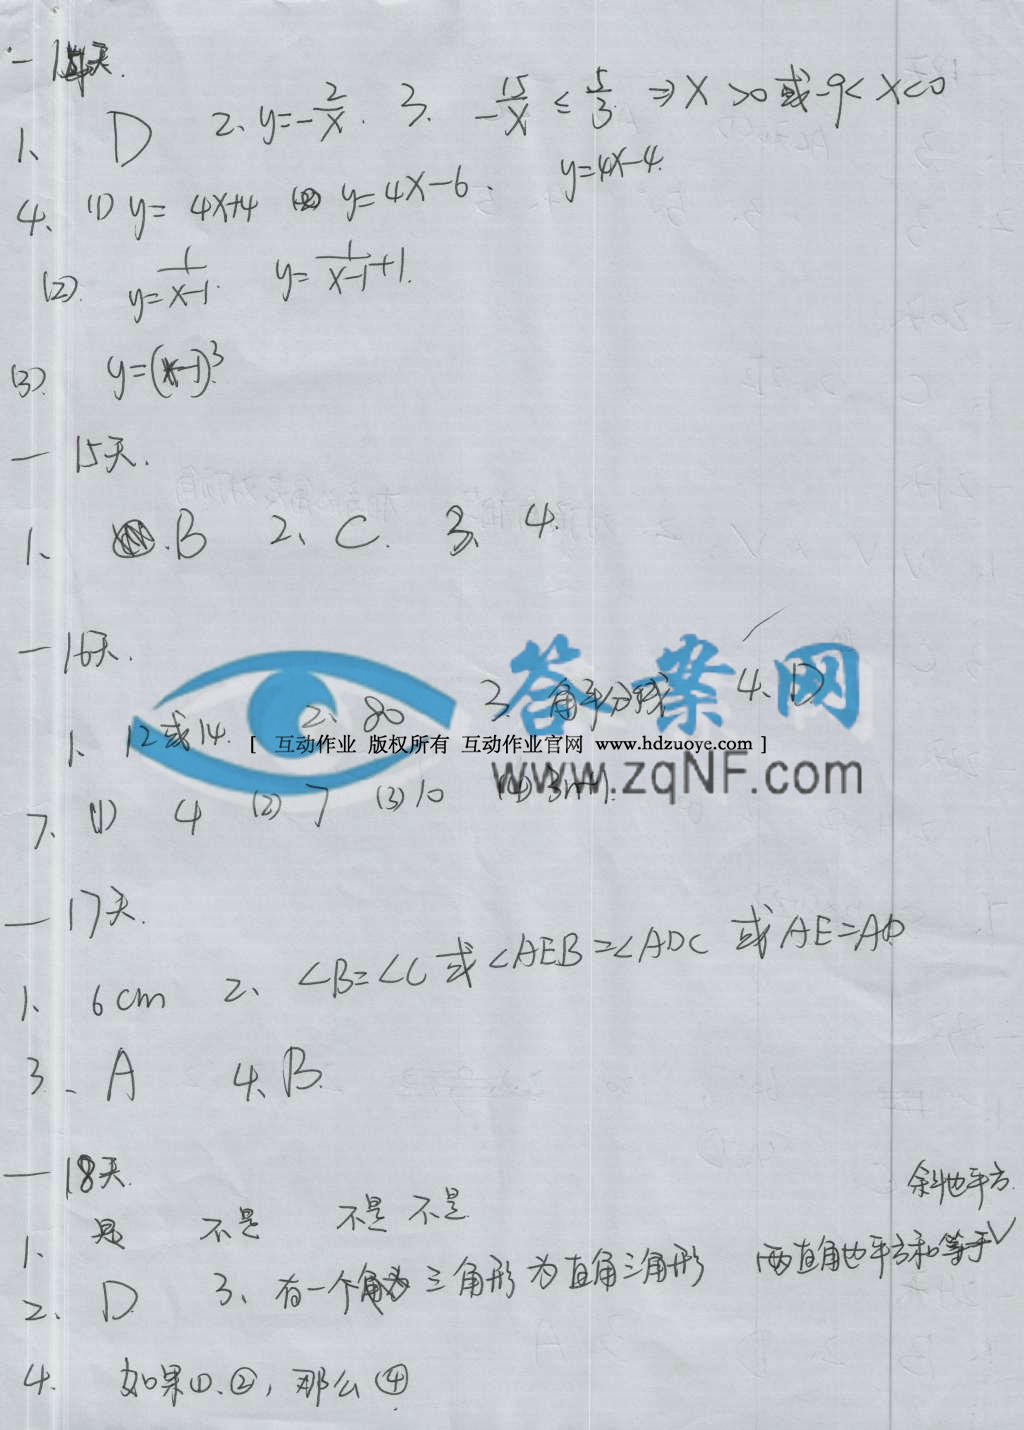 一 14天.
1、 D 2、y=-2/x. 3. -15/x ≤ 5/3 ⇒ x>0或-9<x<0
4、 (1) y= 4x+4 (2) y=4x-6、 y=4x-4.
(2). y=1/(x-1). y=1/(x-1)+1.
(3). y=(x-1)³
一 15天.
1、 B 2、C. 3、4.
一 16天.
1、 12或14. 2、80 3. 角平分线 4、D
[ 互动作业 版权所有 互动作业官网 www.hdzuoye.com ]
答案网
www.zqNF.com
7、 (1) 4 (2) 7 (3) 10 (4) 3n+1.
一 17天.
1、 6cm 2、 <B=<C 或 <AEB=<ADC 或 AE=AD
3、 A 4、B.
一 18天.
1、 是 不是 不是 不是
2、 D 3、有一个 三角形为直角三角形 两直角也平方和等于 斜也平方.
4. 如果①、②，那么④